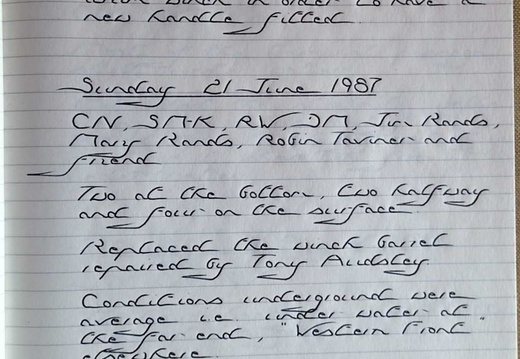 winch in order to have a
new handle fitted
Sunday 21 June 1987
CN, SMK, RW, JM, Jim Rands,
Mary Rands, Robin Taviner and
friend
Two at the bottom, two halfway
and four on the surface
Replaced the winch barrel
repaired by Tony Audsley
Conditions underground were
average i.e. under water at
the far end, "Western Front"
elsewhere